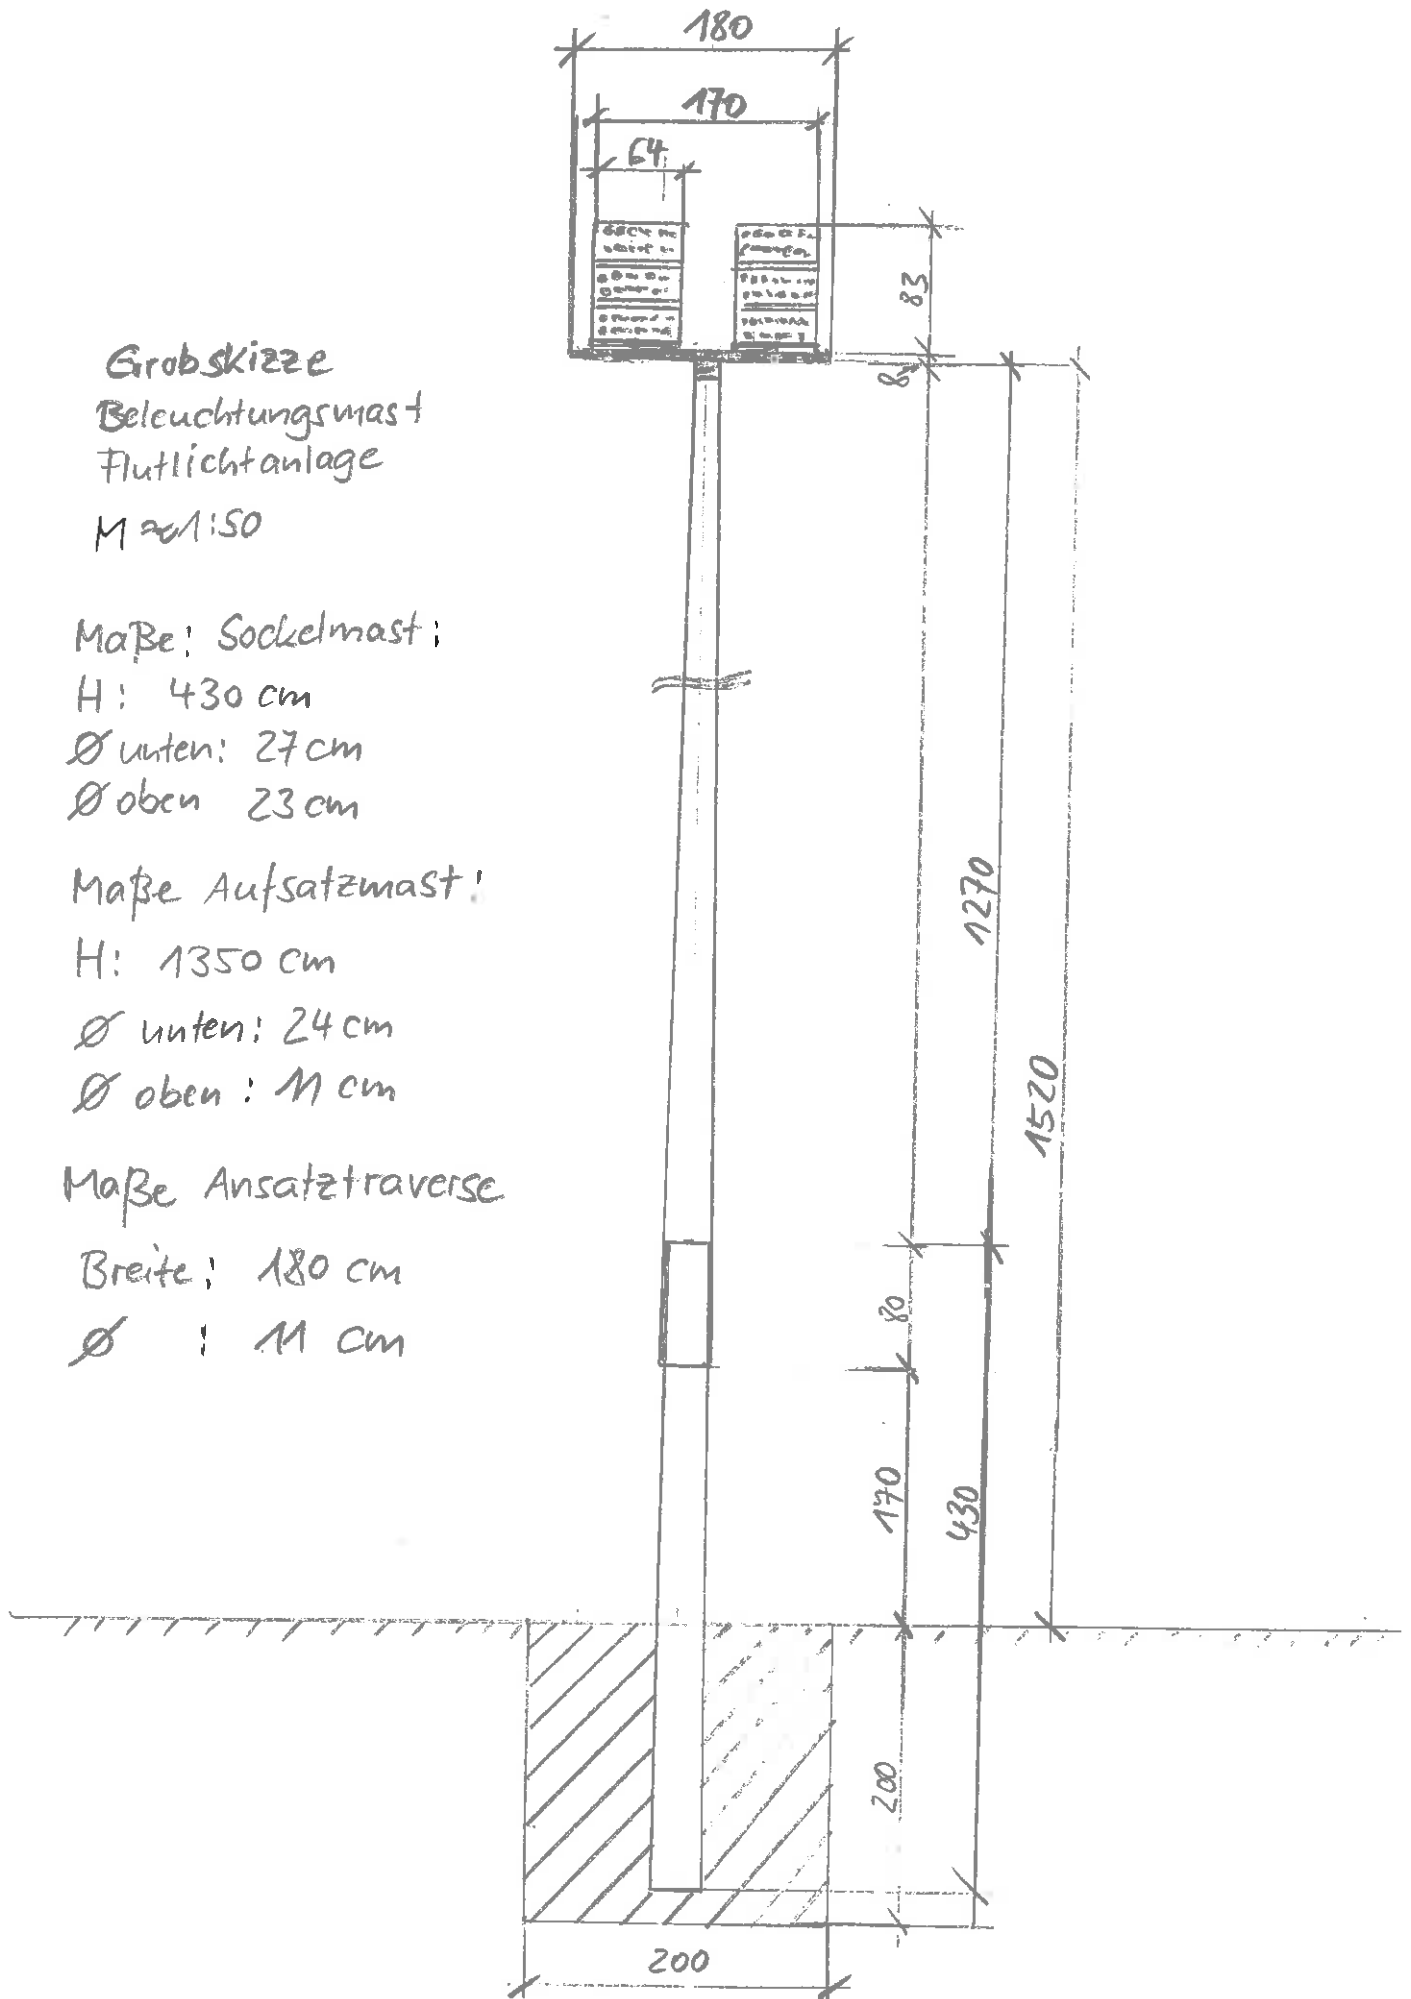 180
170
64
83
8
Grobskizze
Beleuchtungsmast
Flutlichtanlage
M ≈ 1:50
Maße: Sockelmast:
H: 430 cm
Ø unten: 27 cm
Ø oben 23 cm
Maße Aufsatzmast:
H: 1350 cm
Ø unten: 24 cm
Ø oben : 11 cm
Maße Ansatztraverse
Breite: 180 cm
Ø : 11 cm
1270
1520
80
170
430
200
200